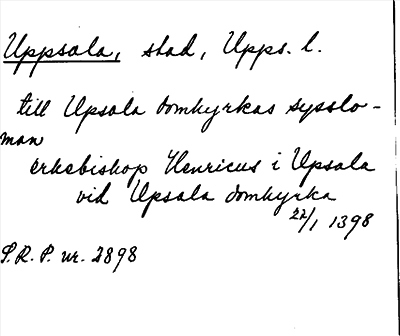 Uppsala, stad, Upps. l.
till Upsala domkyrkas sysslo-
man
ärkebiskop Henricus i Upsala
vid Upsala domkyrka
22/1 1398
S.R.P. nr. 2898